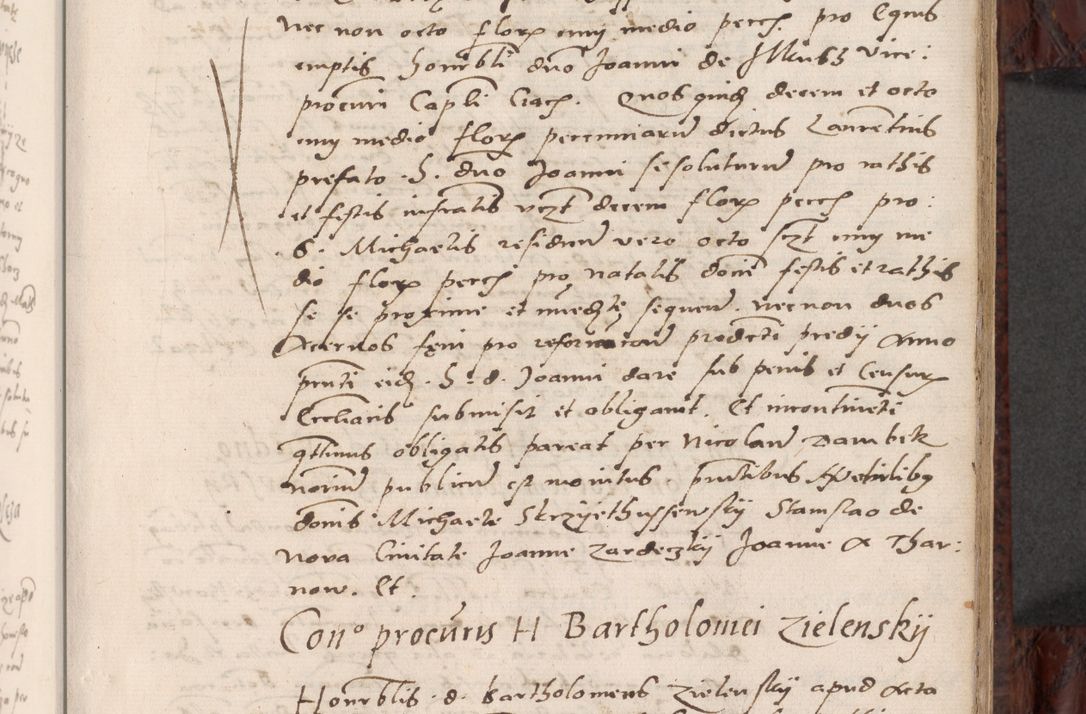 nec non octo florꝭ cuȷ medio pecch pro Equis
emptis honrbli dno Joanni de Ilkusz vice:
procuri Capli Crach. Quos quidȝ decem et octo
cuȷ medio florꝭ pecuniarū dictus Laurentius
prefato . H . dno Joanni se soluturum pro rathis
et festis infratis vczt decem florꝭ pecch pro:
S. Michaelis residuum vero octo sczt cuȷ me
dio florꝭ pecch pro natalis domi festis et rathis
se se proxime et immedte sequen. nec non duos
Acervos feni pro reformacione predicti predij Anno
pnte eidȝ . H . d . Joanni dare sub penis et Censurꝭ
Eccliacis submisit et obligavit. Et incontinenti
qttinus obligatis pareat per Nicolaum Dambek
norium publicum est monitus. pntibus
donis Michaele Skrzyethussewskij Stanislao de
Nova Civitate Joanne Zardeczkij Joanne A Thar:
now. Et.
Cono procuris H Bartholomei Zielenskij
Honrblis . d . Bartholomeus Zielenskij apud Acta